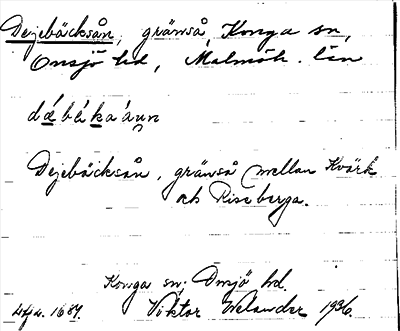 Dejebäcksån, gränså, Konga sn,
Onsjö hd, Malmöh. län
Dejebäcksån, gränså mellan Kvärk
och Riseberga.
Konga sn; Onsjö hd.
1684. Viktor Welander 1936.